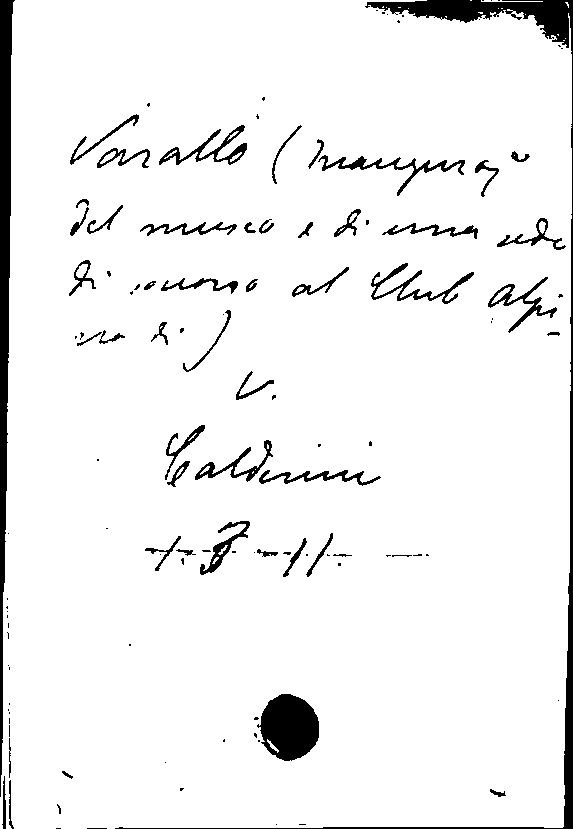 Varallo (Inauguraz.e
del museo e di una sede
di soccorso al Club Alpi-
no di)
V.
Calderini